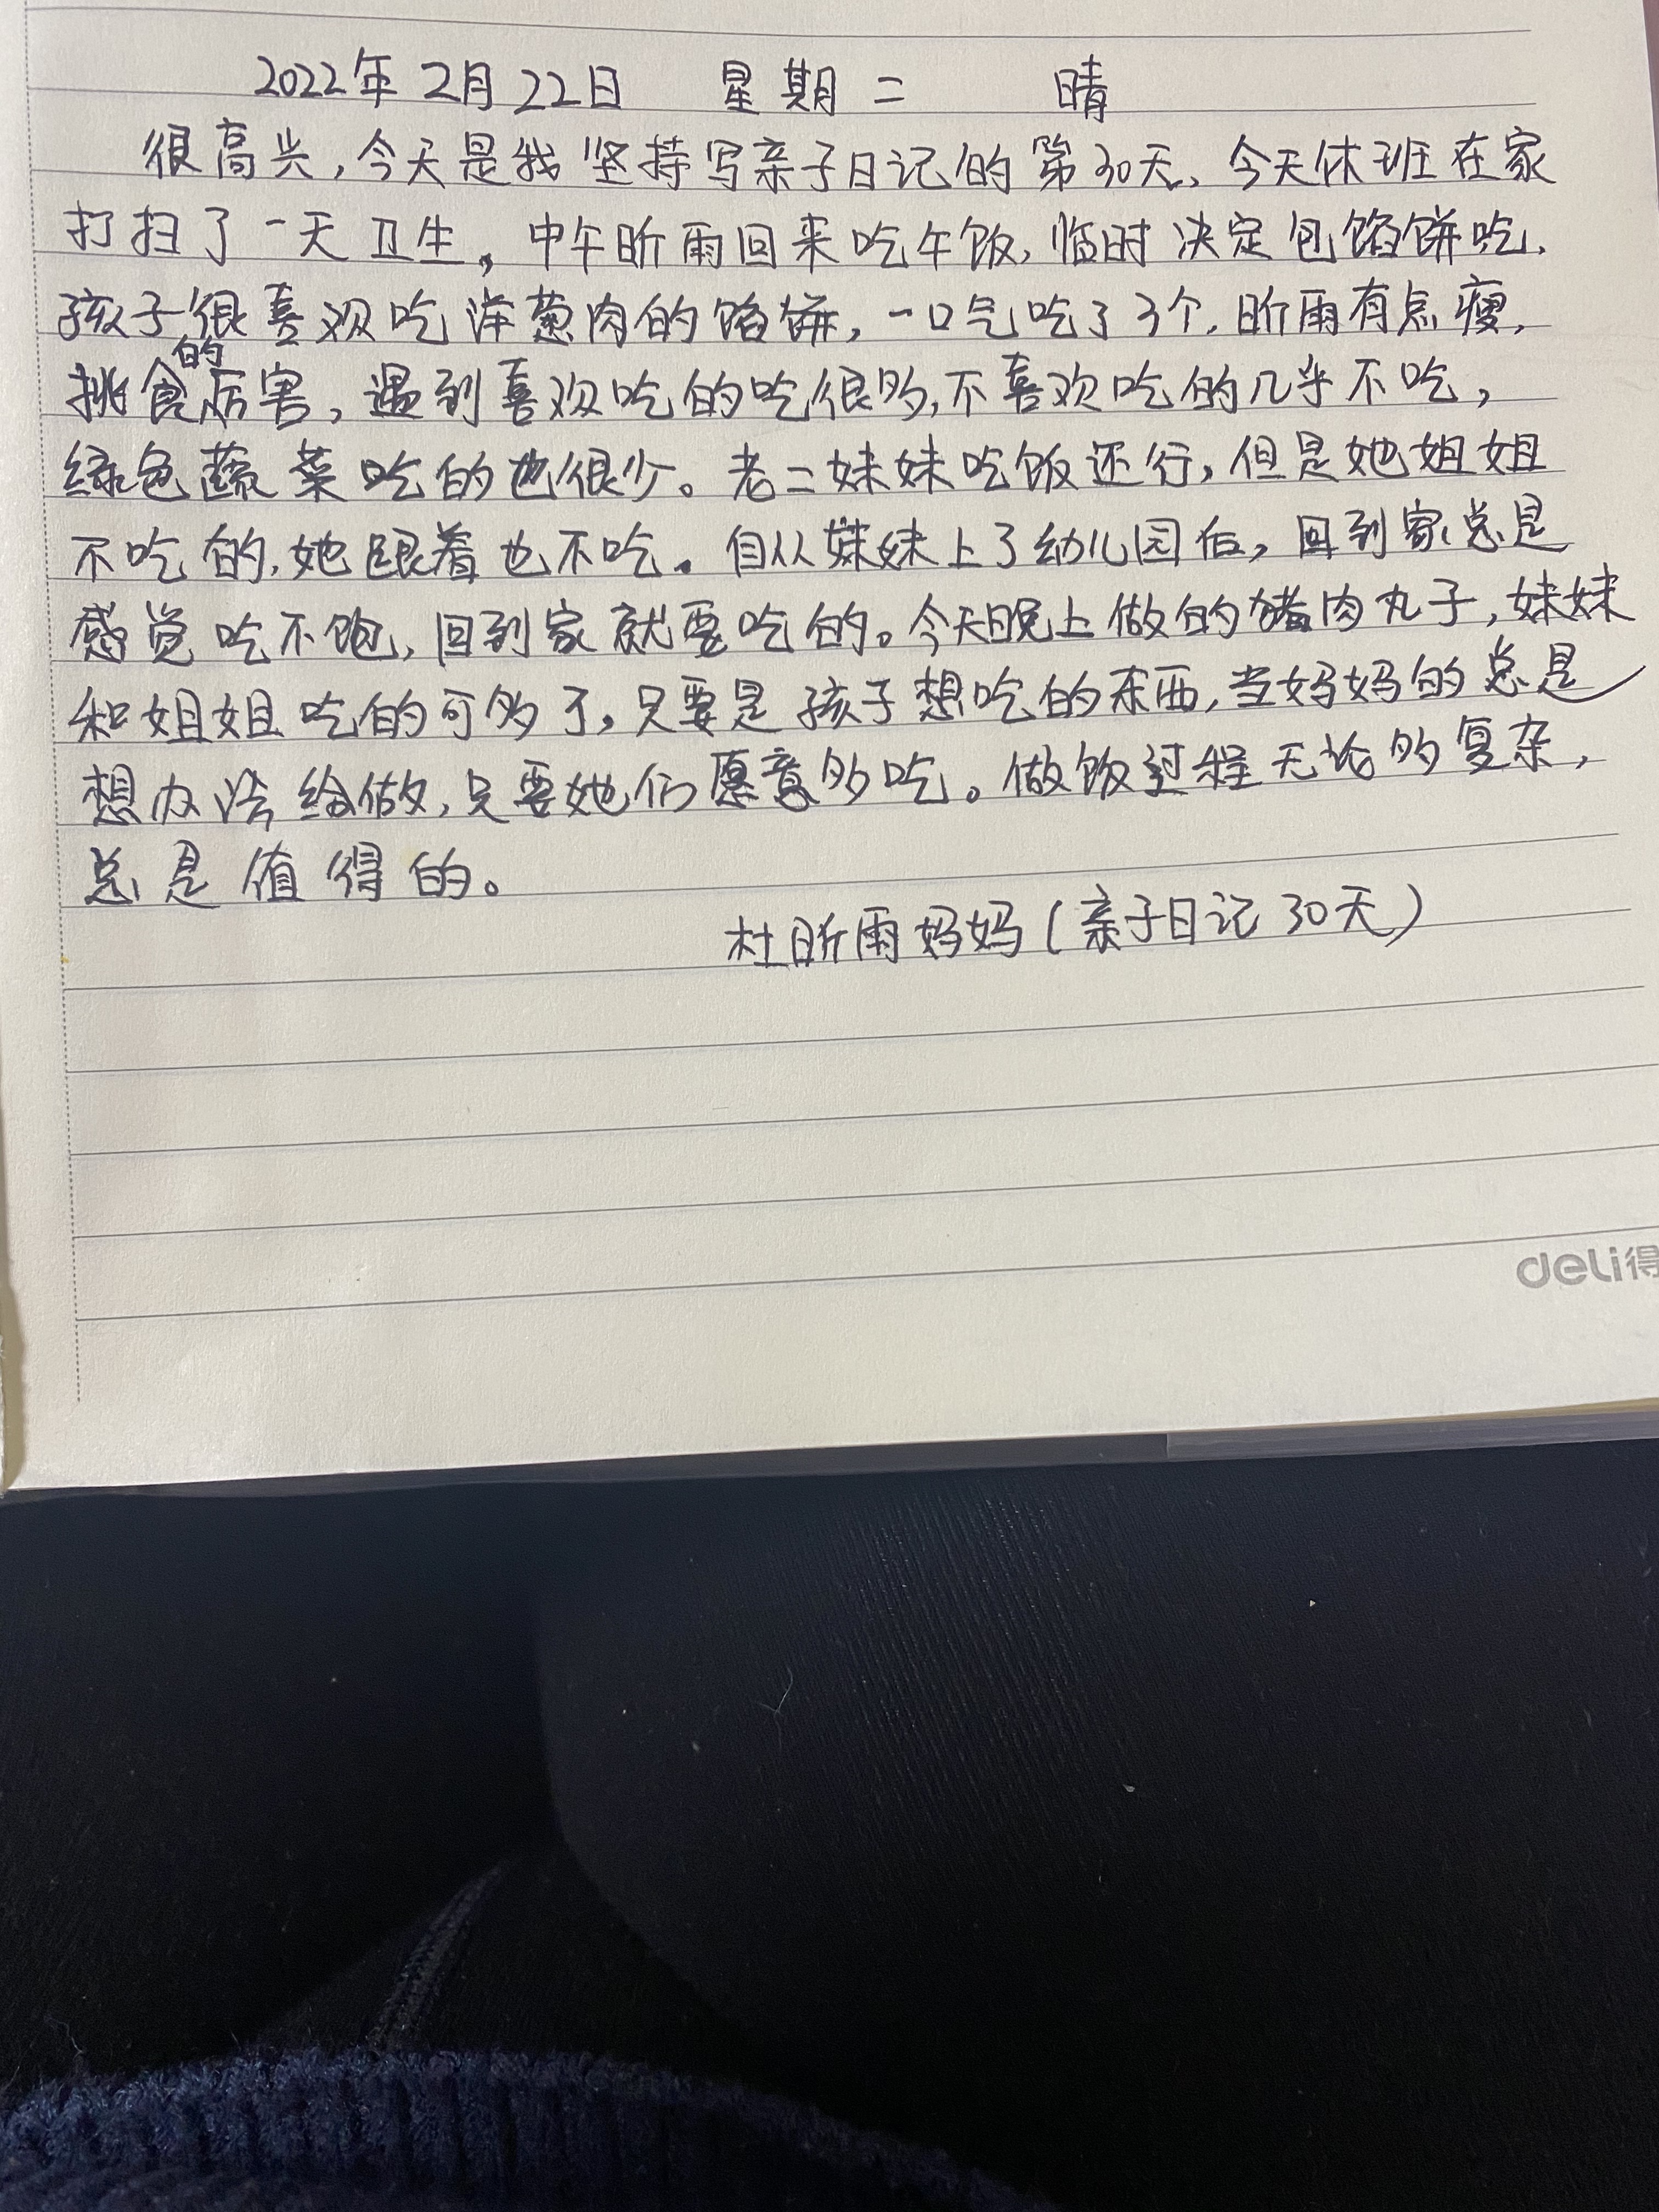 2022年2月22日 星期二 晴
很高兴,今天是我坚持写亲子日记的第30天、今天休班在家
打扫了一天卫生。中午昕雨回来吃午饭,临时决定包馅饼吃.
孩子很喜欢吃洋葱肉的馅饼,一口气吃了3个.昕雨有点瘦,
挑食的厉害,遇到喜欢吃的吃很多,不喜欢吃的几乎不吃,
绿色蔬菜吃的也很少。老二妹妹吃饭还行,但是她姐姐
不吃的,她跟着也不吃。自从妹妹上了幼儿园后,回到家总是
感觉吃不饱,回到家就要吃的。今天晚上做的猪肉丸子,妹妹
和姐姐吃的可多了,只要是孩子想吃的东西,当妈妈的总是
想办法给做,只要她们愿意多吃。做饭过程无论多复杂,
总是值得的。
杜昕雨妈妈(亲子日记30天)
deli得